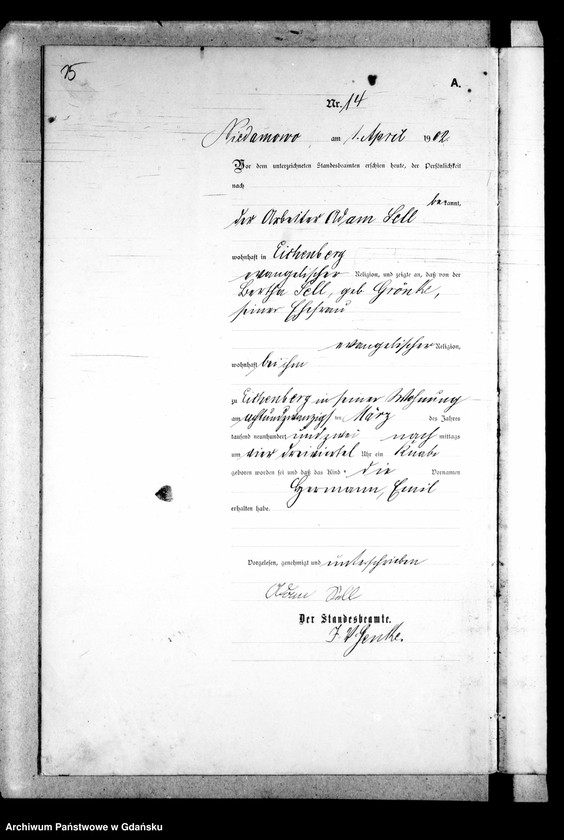 75
A.
Nr. 14
Niedamowo am 1. April 1902
Vor dem unterzeichneten Standesbeamten erschien heute, der Persönlichkeit
nach
bekannt,
der Arbeiter Adam Sell
wohnhaft in Eichenberg
evangelischer Religion, und zeigte an, daß von der
Bertha Sell, geb. Grönke,
seiner Ehefrau
evangelischer Religion,
wohnhaft bei ihm
zu Eichenberg in seiner Wohnung
am achtundzwanzigsten März des Jahres
tausend neunhundert und zwei nach mittags
um vier dreiviertel Uhr ein Knabe
geboren worden sei und daß das Kind die Vornamen
Hermann, Emil
erhalten habe.
Vorgelesen, genehmigt und unterschrieben
Adam Sell
Der Standesbeamte.
J. V. Henke.
Archiwum Państwowe w Gdańsku